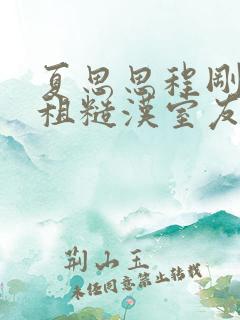 夏思思程剛
粗糙漢室友
荊山玉
未经同意禁止转载